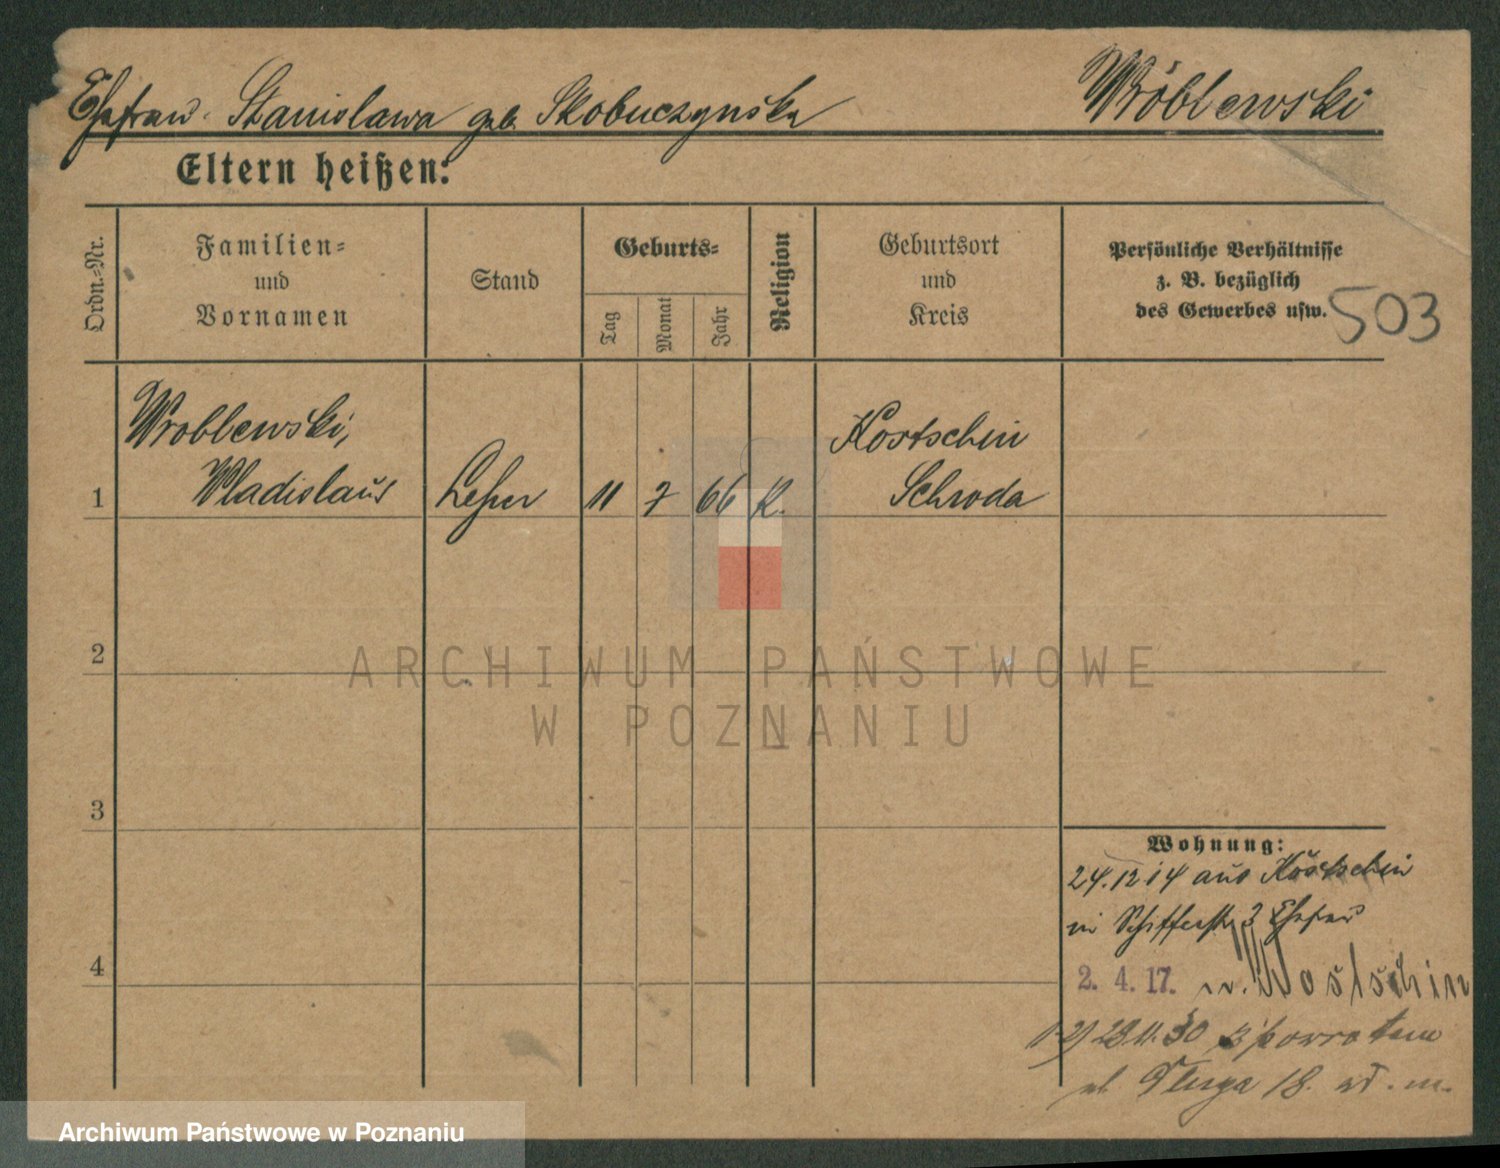 Ehefrau Stanislawa geb. Skobuczynska Wróblewski
Eltern heißen:
Ordn.=Nr.
Familien=
und
Vornamen
Stand
Geburts=
Tag
Monat
Jahr
Religion
Geburtsort
und
Kreis
Persönliche Verhältnisse
z. B. bezüglich
des Gewerbes usw.
503
Wroblewski, Kostschin
1 Wladislaus 11 7 66 K. Schroda
2
3
4
Wohnung:
24.12 14 aus Kostschin
in Schifferstr 3 Ehefrau
2. 4. 17. n. Kostschin
z powrotem
ul. Długa 18.
ARCHIWUM PAŃSTWOWE
W POZNANIU
Archiwum Państwowe w Poznaniu